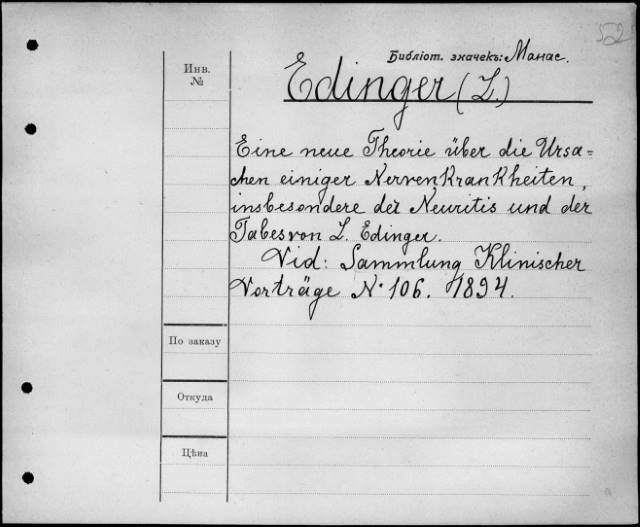 522
Библіот. значекъ: Манас.
Инв.
№
Edinger (L.)
Eine neue Theorie über die Ursa=
chen einiger Nervenkrankheiten,
insbesondere der Neuritis und der
Tabes von L. Edinger.
Vid: Sammlung Klinischer
Vorträge N. 106. 1894.
По заказу
Откуда
Цѣна